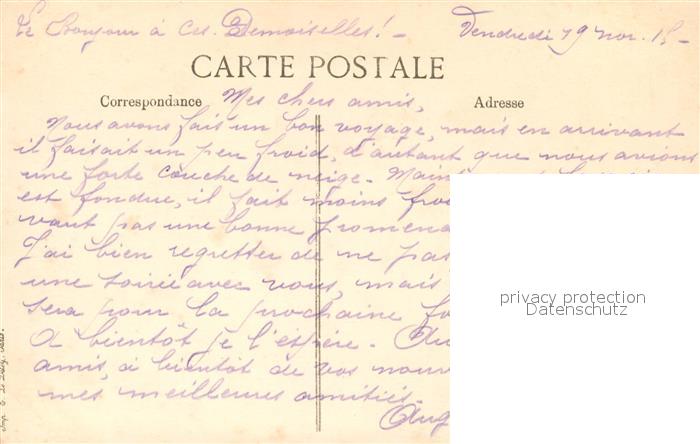 Le Bonjour à ces Demoiselles! - Vendredi 19 nov. 15 -
CARTE POSTALE
Correspondance Mes chers amis, Adresse
Nous avons fais un bon voyage, mais en arrivant
il faisait un peu froid, d'autant que nous avions
une forte couche de neige -
est fondue, il fait moins
vaut pas une bonne
J'ai bien regretter de ne pas
une soirée avec vous, mais
sera pour la prochaine
A bientôt je l'espère -
amis, à bientôt de vos
mes meilleures amitiés -
privacy protection
Datenschutz